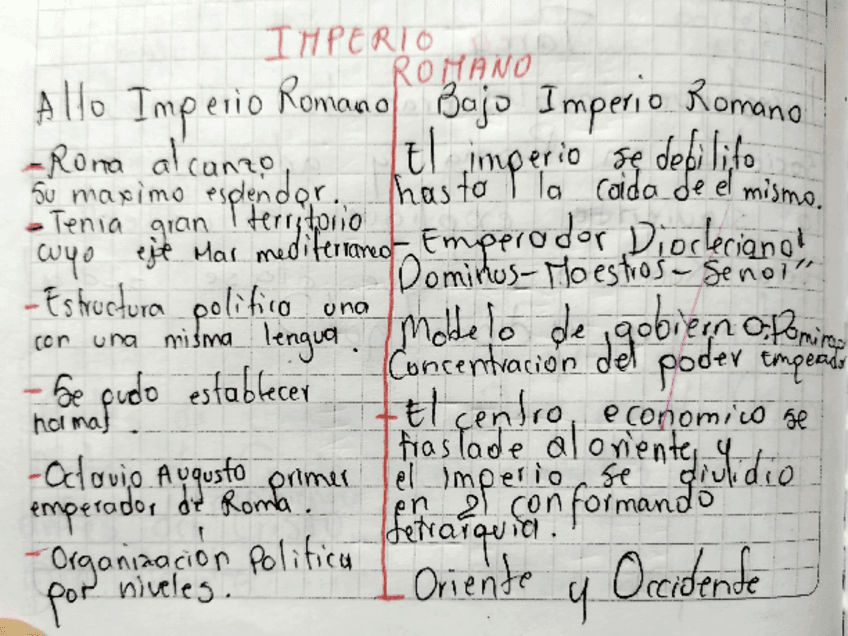 IMPERIO
ROMANO
Alto Imperio Romano
-Roma alcanzo
su maximo esplendor.
-Tenia gran territorio
cuyo eje Mar mediterraneo
-Estructura politico una
con una misma lengua.
- Se pudo establecer
normas.
-Octavio Augusto primer
emperador de Roma.
-Organizacion Politica
por niveles.
Bajo Imperio Romano
El imperio se debilito
hasta la caida de el mismo.
-Emperador Diocleciano"
Dominus-Maestros-Señor"
Modelo de gobierno:
Concentracion del poder Emperador
-El centro economico se
traslade al oriente y
el imperio se dividio
en 2 conformando
tetrarquia.
-Oriente y Occidente